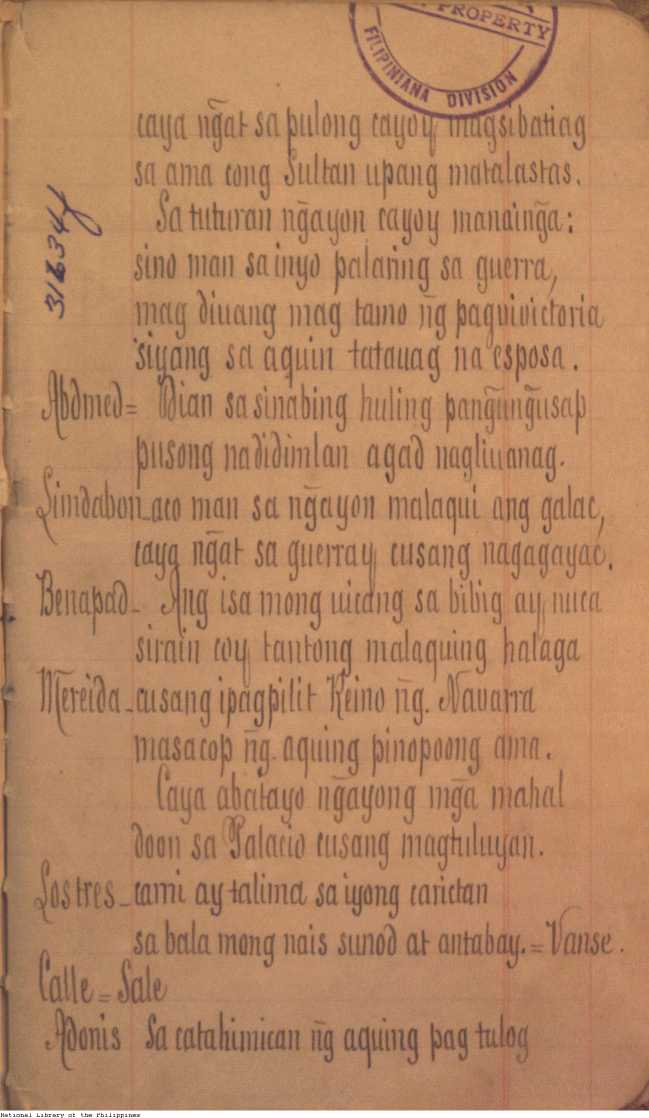 PROPERTY
FILIPINIANA DIVISION
caya ng̃at sa pulong cayoy magsibatiag
sa ama cong Sultan upang matalastas.
Sa tuturan ng̃ayon cayoy manaing̃a:
sino man sa inyo palaring sa guerra,
mag diuang mag tamo ñg pagvivictoria
siyang sa aquin tatauag na esposa.
31634f
Abdmed= Dian sa sinabing huling pang̃ung̃usap
pusong nadidimlan agad nagliuanag.
Limdabon_aco man sa ng̃ayon malaqui ang galac,
caya ng̃at sa guerray cusang nagagayac.
Benapad_ Ang isa mong uicang sa bibig ay nuca
sirain coy tantong malaquing halaga
Mereida_cusang ipagpilit Reino n̄g. Navarra
masacop n̄g. aquing pinopoong ama.
Caya abatayo ng̃ayong mg̃a mahal
doon sa Palacio cusang magtuluyan.
Los tres_cami ay talima sa iyong carictan
sa bala mong nais sunod at antabay.=Vanse.
Calle=Sale
Adonis Sa catahimican n̄g aquing pag tulog
National Library of the Philippines